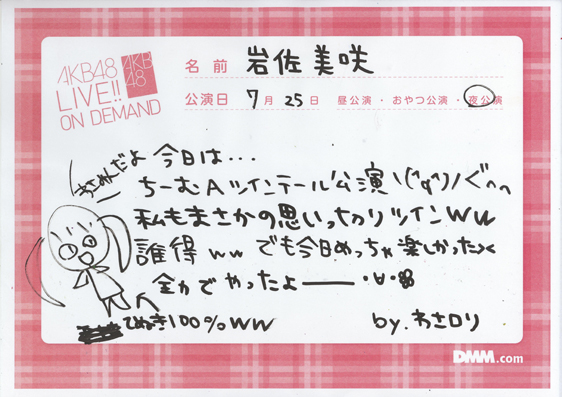 AKB48
LIVE!!
ON DEMAND
AKB
48
名前 岩佐美咲
公演日 7月25日 昼公演・おやつ公演・夜公演
わさみんだよ 今日は・・・
ちーむAツインテール公演\(^q^)/ぐへへ
私もまさかの思いっきりツインww
誰得ww でも今日めっちゃ楽しかったよ
全力でやったよ——
てぬき100%ww
by.わさロリ
DMM.com